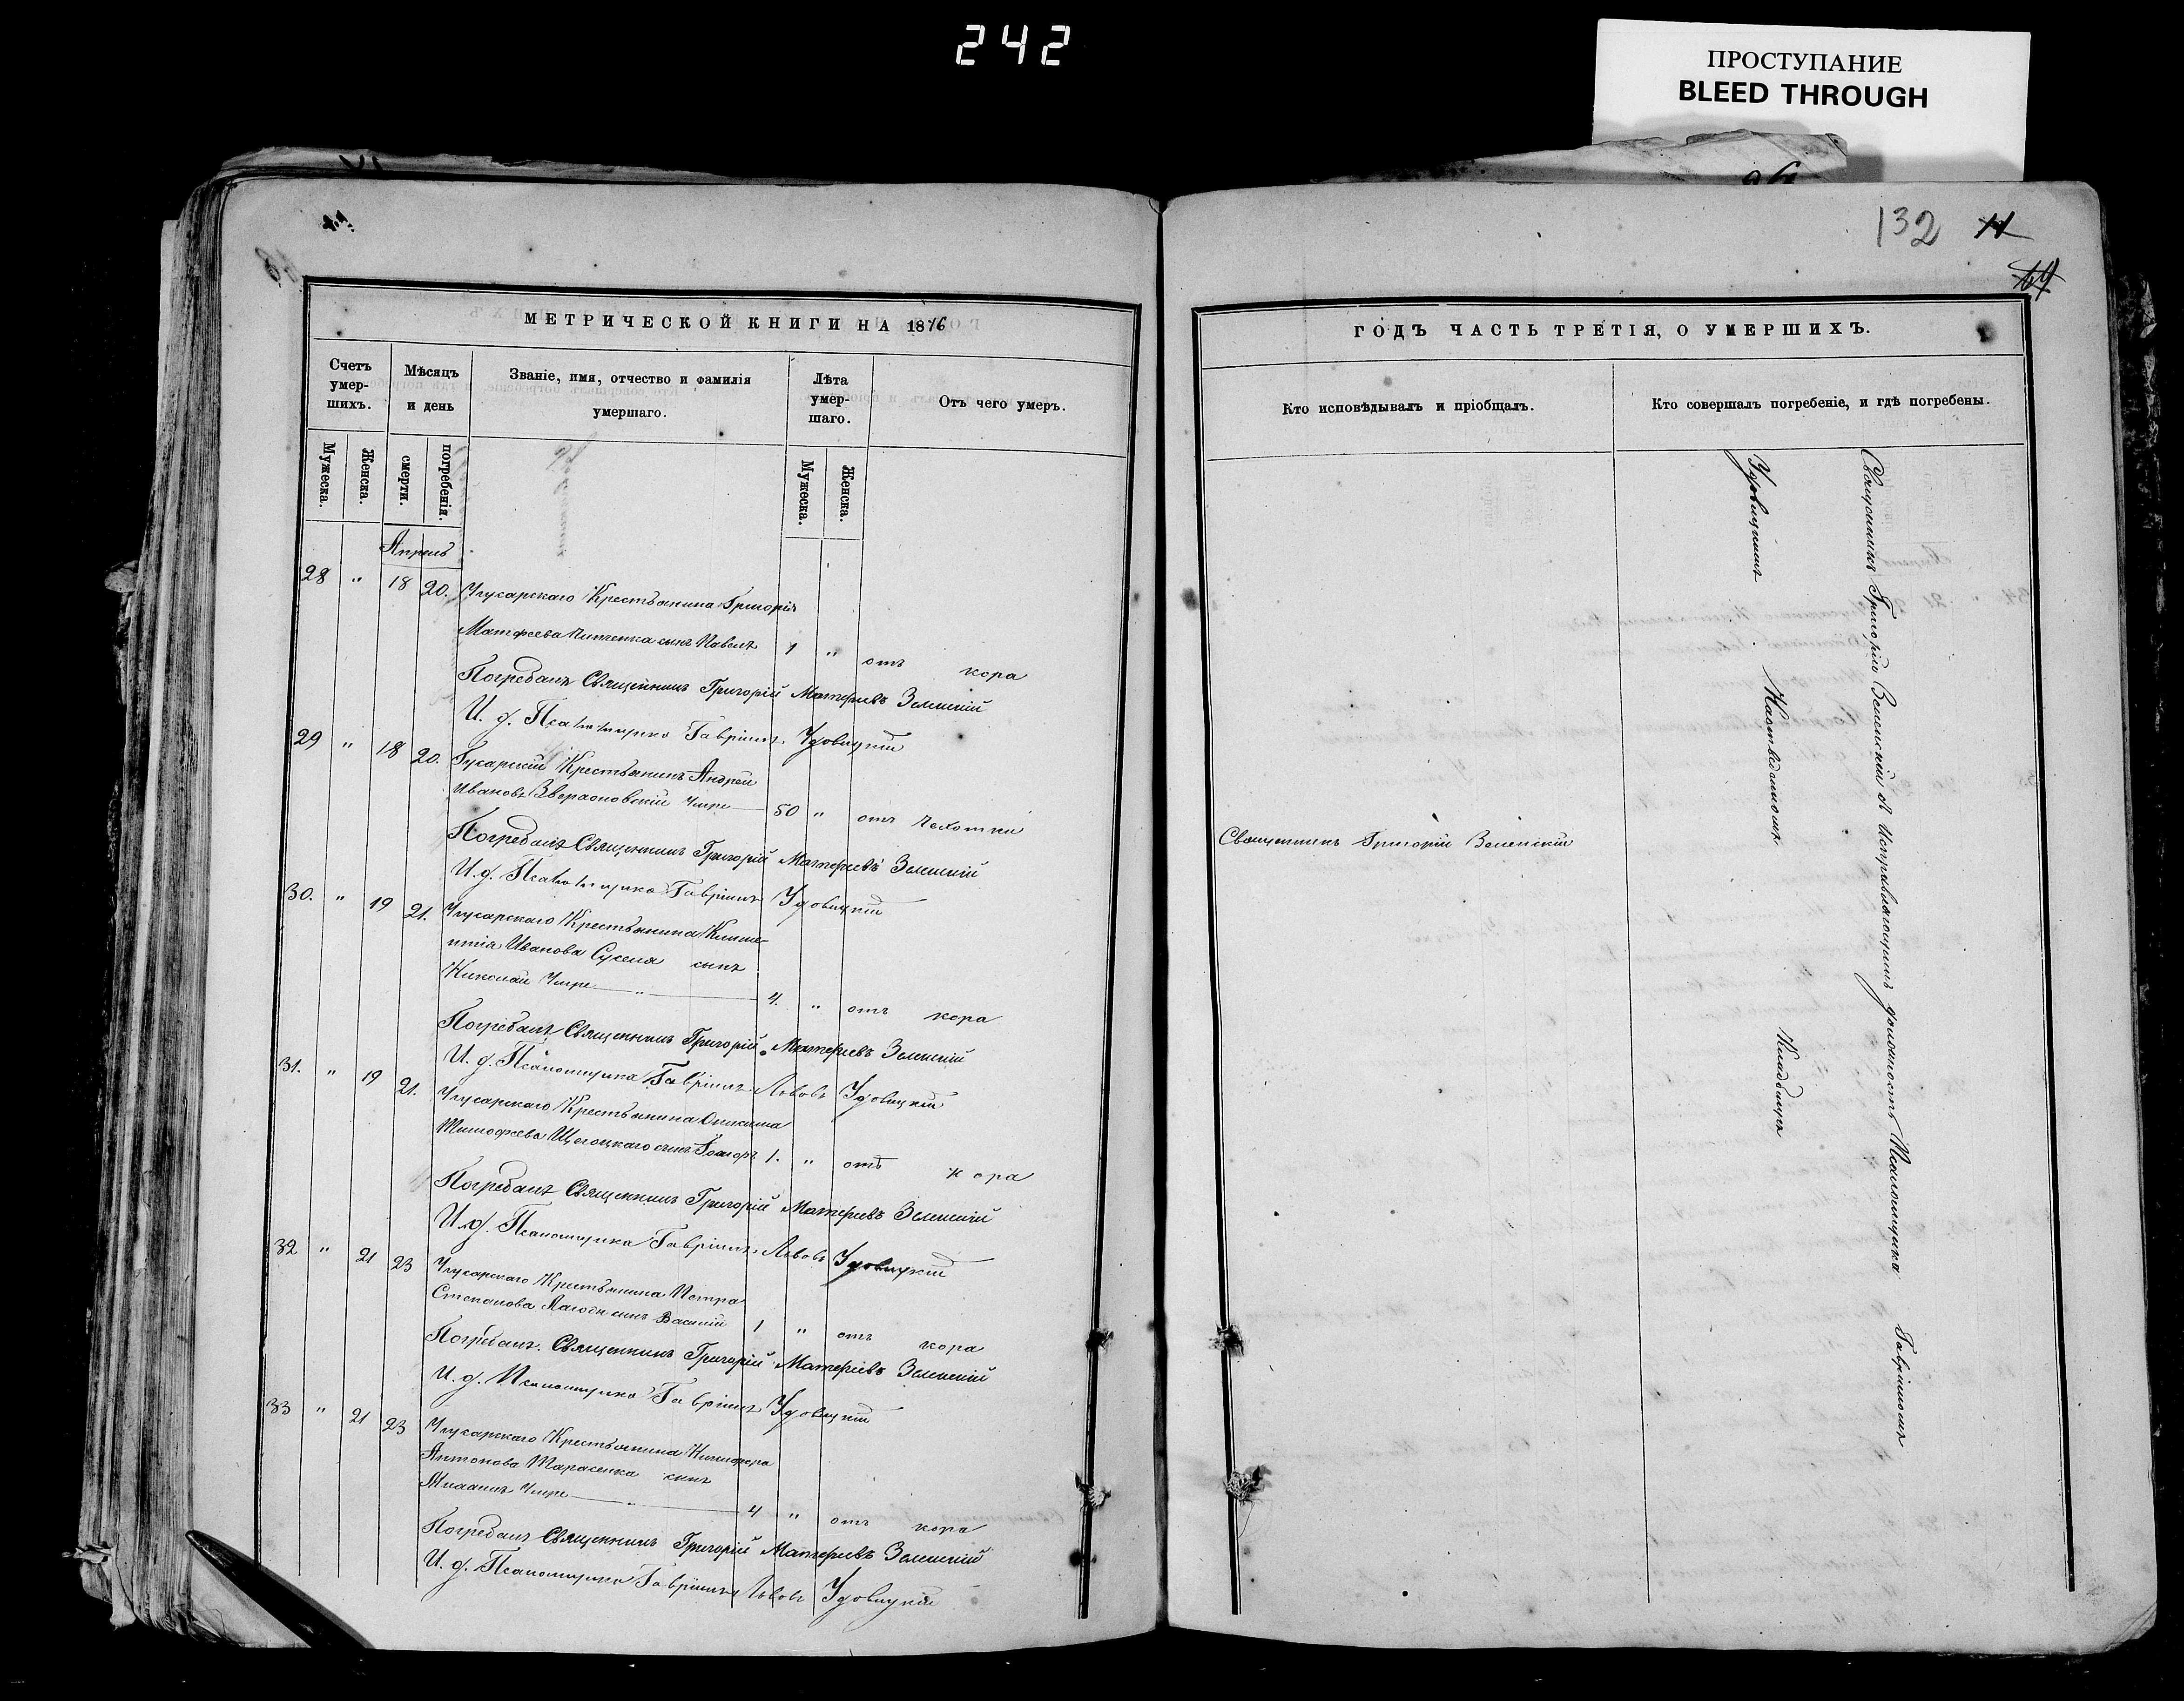 242
ПРОСТУПАНИЕ
BLEED THROUGH
132 11
МЕТРИЧЕСКОЙ КНИГИ НА 1876
Счетъ умершихъ.
Мѣсяцъ и день
Званіе, имя, отчество и фамилія умершаго.
Лѣта умершаго.
Отъ чего умеръ.
Мужеска.
Женска.
смерти.
погребенія.
Мужеска.
Женска.
Апрель
28 " 18 20. Крестьянина Григорія
Матфеева сынъ Павелъ 1 " отъ кора
Погребалъ Священникъ Григорій Матфеевъ Зеленскій
И. д. Псаломщика Гавріилъ Удовицкій
29 " 18 20. Крестьянинъ Андрей
Ивановъ 50 " отъ чахотки
Погребалъ Священникъ Григорій Матфеевъ Зеленскій
И. д. Псаломщика Гавріилъ Удовицкій
30. " 19 21. Крестьянина
Иванова сынъ
Николай 4. " отъ кора
Погребалъ Священникъ Григорій Матфеевъ Зеленскій
И. д. Псаломщика Гавріилъ Львовъ Удовицкій
31. " 19 21. Крестьянина
Тимофеева 1. " отъ кора
Погребалъ Священникъ Григорій Матфеевъ Зеленскій
И. д. Псаломщика Гавріилъ Львовъ Удовицкій
32 " 21 23 Крестьянина Петра
Степанова сынъ Василій 1 " отъ кора
Погребалъ Священникъ Григорій Матфеевъ Зеленскій
И. д. Псаломщика Гавріилъ Удовицкій
33 " 21 23 Крестьянина Никифора
Антонова Тарасенка сынъ
4 " отъ кора
Погребалъ Священникъ Григорій Матфеевъ Зеленскій
И. д. Псаломщика Гавріилъ Львовъ Удовицкій
ГОДЪ ЧАСТЬ ТРЕТІЯ, О УМЕРШИХЪ.
Кто исповѣдывалъ и пріобщалъ.
Кто совершалъ погребеніе, и гдѣ погребены.
Священникъ Григорій Зеленскій
Священникъ Григорій Зеленскій Исправляющимъ должность Псаломщика Гавріиломъ
Удовицкимъ Кладбищѣ